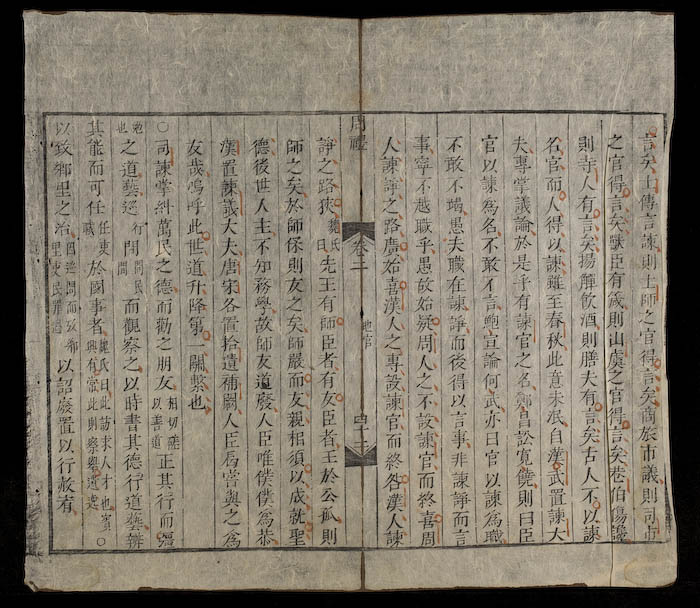 言矣士傳言諫則士師之官得言矣商旅市議則司市
之官得言矣獸臣有箴則山虞之官得言矣巷伯傷讒
則寺人有言矣揚觶飲酒則膳夫有言矣古人不以諫
名官而人得以諫雖至春秋此意未泯自漢武置諫大
夫專掌議論於是乎有諫官之名鄭昌訟寬饒則曰臣
官以諫為名不敢不言鮑宣論何武亦曰官以諫為職
不敢不竭愚夫職在諫諍而後得以言事非諫諍而言
事寧不越職乎愚故始疑周人之不設諫官而終喜周
人諫諍之路廣始喜漢人之專設諫官而終咎漢人諫
周禮 卷二 地官 四十二
諍之路狹魏氏曰先王有師臣者有友臣者王於公孤則
師之矣於師保則友之矣師嚴而友親相須以成就聖
德後世人主不知務學故師友道廢人臣唯僕僕為恭
漢置諫議大夫唐宋各置拾遺補闕人臣為嘗與之為
友哉嗚呼此世道升降第一關繫也
○司諫掌糾萬民之德而勸之朋友相切磋以善道正其行而强
勉也之道藝巡行問民間問而觀察之以時書其德行道藝辨
其能而可任任吏職於國事者魏氏曰此訪求人才也賓興有常此則察舉遺逸○
以攷鄉里之治因巡問而攷鄉里吏民罪過以詔廢置以行赦宥